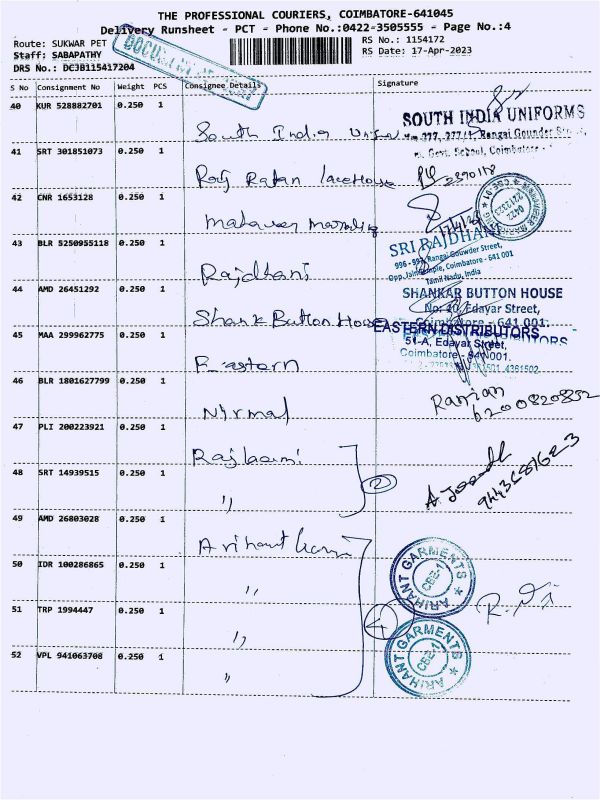 THE PROFESSIONAL COURIERS, COIMBATORE-641045
Delivery Runsheet - PCT - Phone No.:0422-3505555 - Page No.:4
Route: SUKWAR PET
RS No.: 1154172
Staff: SABAPATHY
RS Date: 17-Apr-2023
DRS No.: DC3B115417204
DOCUMENT
S No Consignment No Weight PCS Consignee Details Signature
40 KUR 528882701 0.250 1
South India
SOUTH INDIA UNIFORMS
Rangai Gounder
Govt. School, Coimbatore
41 SRT 301851073 0.250 1
Raj Ratan lace House
42 CNR 1653128 0.250 1
43 BLR 5250955118 0.250 1
Rajdhani
SRI RAJDHANI
Rangai Gowder Street,
Opp. Jain Temple, Coimbatore - 641 001
Tamil Nadu, India
44 AMD 26451292 0.250 1
Shank Button House
SHANKAR BUTTON HOUSE
No: 20, Edayar Street,
Coimbatore - 641 001.
45 MAA 299962775 0.250 1
Eastern
EASTERN DISTRIBUTORS
51-A, Edayar Street,
Coimbatore - 641 001.
46 BLR 1801627799 0.250 1
Nirmal
Ranjan
6200820832
47 PLI 200223921 0.250 1
Rajlaxmi
48 SRT 14939515 0.250 1
"
2
49 AMD 26803028 0.250 1
Arihant
50 IDR 100286865 0.250 1
"
ARIHANT GARMENTS
CBE-1
51 TRP 1994447 0.250 1
"
4
52 VPL 941063708 0.250 1
"
ARIHANT GARMENTS
CBE-1